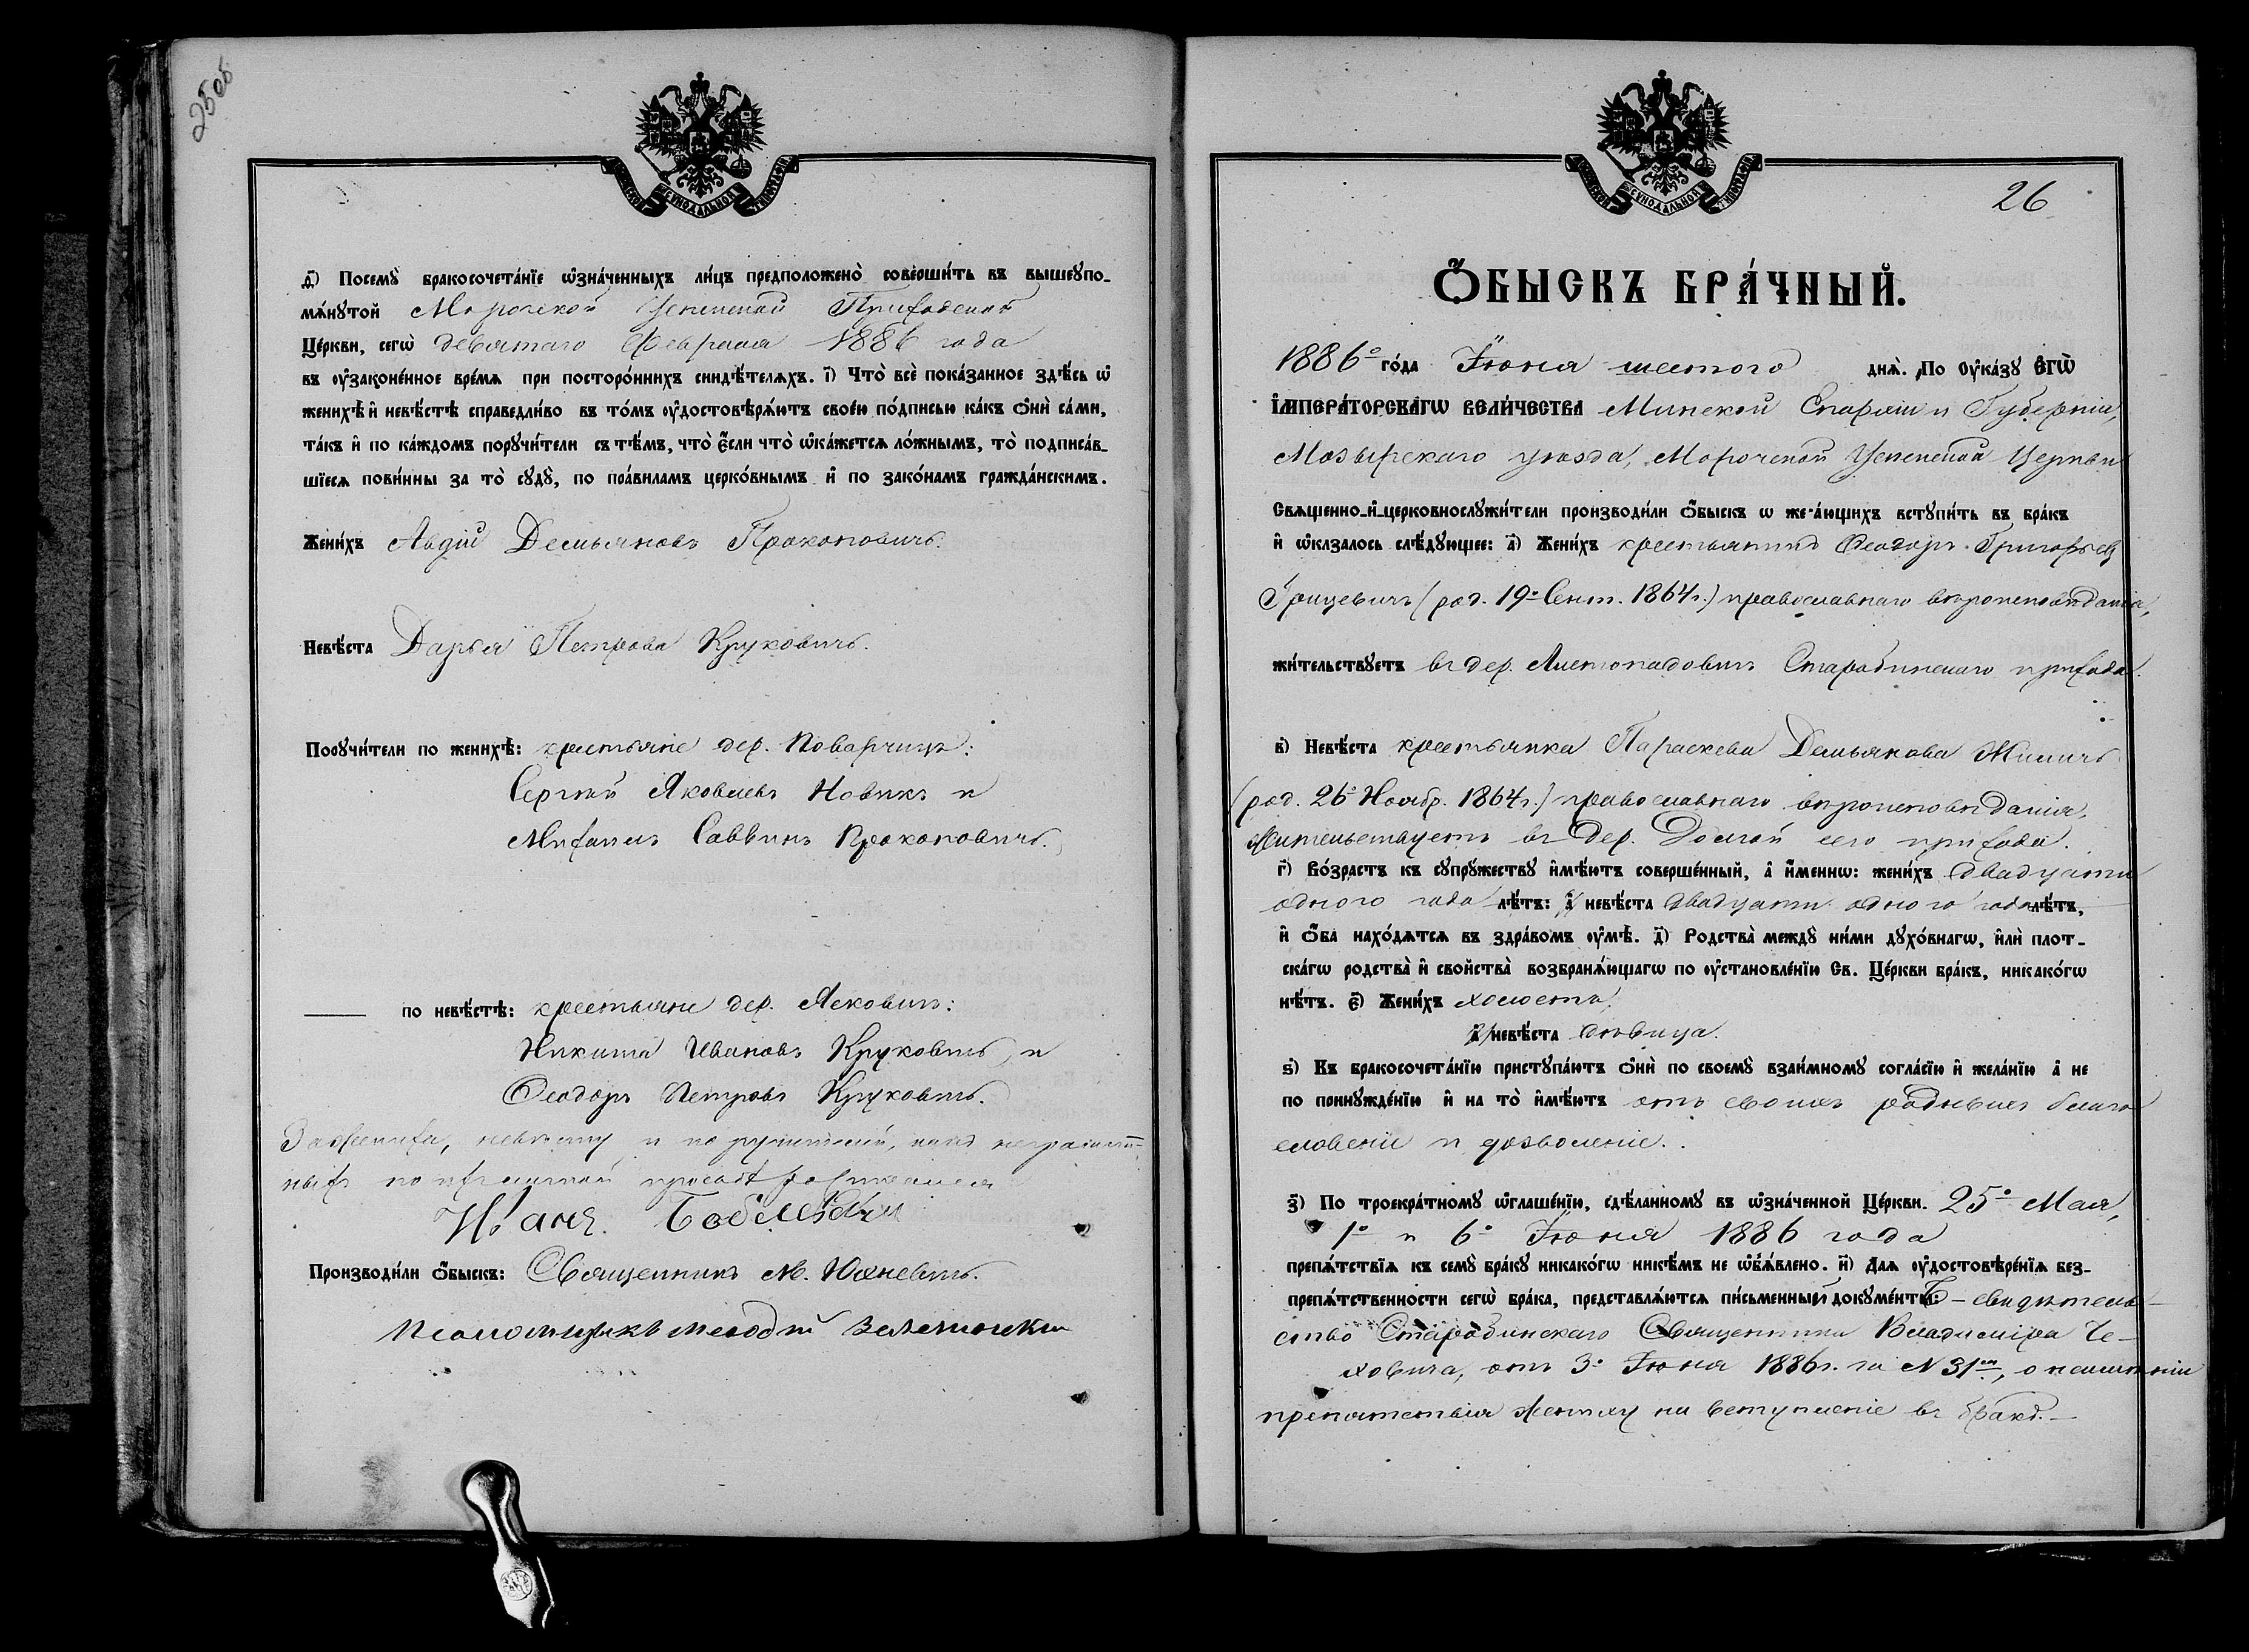 25об
МОСКОВСКОЙ СѴНОДАЛЬНОЙ ТИПОГРАФІИ
д҃) Посемꙋ̀ бракосочета́нїе ѡ҆зна́ченныхъ ли́цъ предположенѐ соверши́ть въ вышеꙋпо-
мѧ́нꙋтой Морочской Успенской Приходской
Це́ркви, сегѡ̀ девятаго Февраля 1886 года
въ ᲂу҆законе́нное вре́мѧ при посторо́ннихъ свидѣ́телѧхъ. і҃) Что̀ всѐ пока́занное здѣ́сь ѡ҆
женихѣ̀ и҆ невѣ́стѣ справедли́во въ то́мъ ᲂу҆достовѣрѧ́ютъ свое́ю по́дписью ка́къ ѻ҆нѝ са́ми,
та́къ и҆ по ка́ждомъ порꙋчи́тели съ тѣ́мъ, что̀ є҆́сли что̀ ѡ҆ка́жетсѧ ло́жнымъ, то̀ подписа́в-
шїесѧ пови́нны за то̀ сꙋдꙋ̀, по пра́виламъ церко́внымъ и҆ по зако́намъ гражда́нскимъ.
Жени́хъ Авдій Демьяновъ Прокоповичъ.
Невѣ́ста Дарья Петрова Круковичъ.
Порꙋчи́тели по женихѣ̀: крестьяне дер. Поварчицъ:
Сергій Яковлевъ Новикъ и
Михаилъ Саввинъ Прокоповичъ.
по невѣ́стѣ: крестьяне дер. Ясковичъ:
Никита Ивановъ Круковичъ, и
Ѳеодоръ Петровъ Круковичъ.
За жениха, невѣсту и поручителей, какъ неграмот-
ныхъ по их личной просьбѣ росписался
Иванъ
Производи́ли ѻ҆́быскъ: Священникъ М. Юхневичъ.
Псаломщикъ Меѳодій
МОСКОВСКОЙ СѴНОДАЛЬНОЙ ТИПОГРАФІИ
26
Ѻ҆́БЫСКЪ БРА́ЧНЫЙ.
1886º го́да Іюня шестого днѧ̀. По Оу҆ка́зꙋ Є҆ГѠ̀
І҆МПЕРА́ТОРСКАГѠ ВЕЛИ́ЧЕСТВА Минской Епархіи и Губерніи,
Мозырскаго уѣзда, Морочской Успенской Церкви
Свѧщенно-и҆-церковнослꙋжи́тели производи́ли ѻ҆́быскъ ѡ же а́ющихъ встꙋпи́ть въ бра́къ
и҆ ѡ҆казалось слѣ́дꙋющее: а҃) Жени́хъ крестьянинъ Ѳеодоръ Григорьевъ
Грицевичъ (род. 19º Сент. 1864г.) православнаго вѣроисповѣданія,
жи́тельствꙋетъ въ дер. Листопадовичъ Старобинскаго прихода.
в҃) Невѣ́ста крестьянка Параскева Демьянова Жиличъ
(род. 26º Ноябр. 1864г.) православнаго вѣроисповѣданія,
жительствуетъ въ дер. Долгой сего прихода.
г҃) Во́зрастъ къ сꙋпрꙋ́жествꙋ и҆мѣ́ютъ соверше́нный, а҆ и҆́меннѡ: жени́хъ двадцати
одного года лѣ́тъ: а҆ невѣ́ста двадцати одного года лѣ́тъ,
и҆ ѻ҆́ба нахо́дѧтсѧ въ здра́вомъ ᲂу҆мѣ̀. д҃) Родства̀ междꙋ̀ ни́ми дꙋхо́внагѡ, и҆лѝ плот-
ска́гѡ родства̀ и҆ свойства̀ возбранѧ́ющагѡ по ᲂу҆становле́нїю Св. Це́ркви бра́къ, никако́гѡ
нѣ́тъ. є҃) Жени́хъ холостъ,
а҆ невѣ́ста дѣвица.
ѕ҃) Къ бракосочета́нїю пристꙋпа́ютъ ѻ҆нѝ по своемꙋ̀ взаи́мномꙋ согла́сїю и҆ жела́нїю а҆ не
по принꙋжде́нїю и҆ на то̀ и҆мѣ́ютъ отъ своихъ родныхъ благо-
словеніе и дозволеніе.
з҃) По троекра́тномꙋ ѡ҆глаше́нїю, сдѣ́ланномꙋ въ ѡ҆зна́ченной Це́ркви. 25º Мая,
1º и 6º Іюня 1886 года
препѧ́тствїѧ къ семꙋ̀ бра́кꙋ никако́гѡ никѣ́мъ не ѡ҆б̾ѧ́влено. и҃) Длѧ ᲂу҆достовѣре́нїѧ без-
препѧ́тственности сегѡ̀ бра́ка, представлѧ́ютсѧ пи́сьменный докꙋме́нтъ: – свидѣтель-
ство Старобинскаго Священника Владиміра Че-
ховича, отъ 3º Іюня 1886г. за № 31мъ, о неимѣніи
препятствія жениху на вступленіе въ бракъ.–